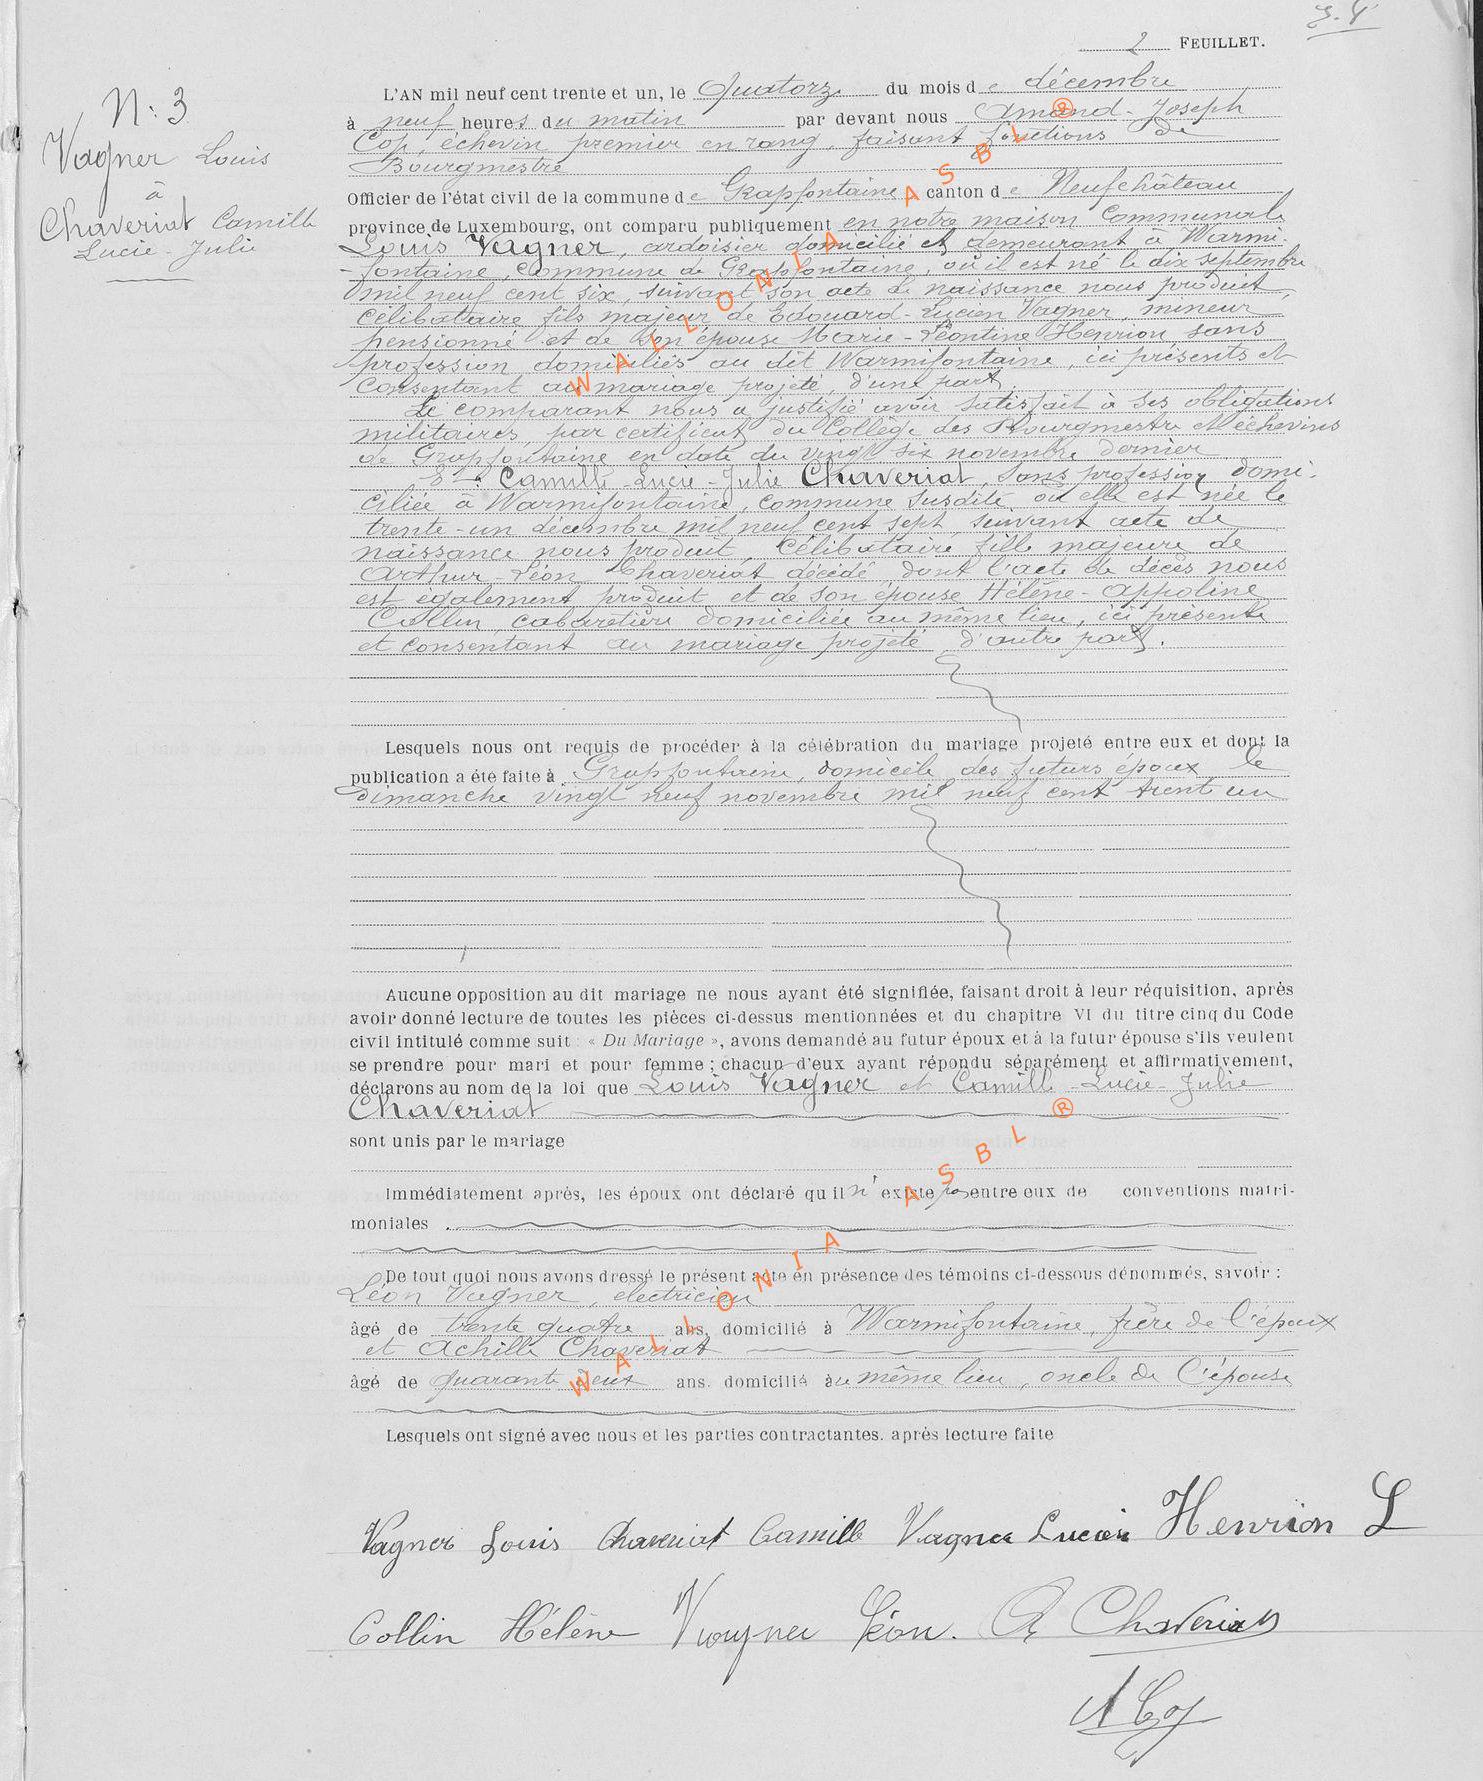 2 FEUILLET.
N: 3
Vagner Louis
à
Chaveriat Camille
Lucie-Julie
L'AN mil neuf cent trente et un, le quatorze du mois de décembre
à neuf heures du matin par devant nous Amand-Joseph
Cop, échevin premier en rang, faisant fonctions de
Bourgmestre
Officier de l'état civil de la commune de Grapfontaine canton de Neufchâteau
province de Luxembourg, ont comparu publiquement en notre maison Communale
Louis Vagner, ardoisier domicilié et demeurant à Warmi-
-fontaine, commune de Grapfontaine, où il est né le dix septembre
mil neuf cent six, suivant son acte de naissance nous produit,
célibataire fils majeur de Edouard-Lucien Vagner, mineur
pensionné et de son épouse Marie-Léontine Henrion sans
profession domiciliés au dit Warmifontaine, ici présents et
consentant au mariage projeté, d'une part,
Le comparant nous a justifié avoir satisfait à ses obligations
militaires par certificat du Collège des Bourgmestre et échevins
de Grapfontaine en date du vingt six novembre dernier
Et Camille-Lucie-Julie Chaveriat, sans profession domi-
ciliée à Warmifontaine, commune susdite où elle est née le
trente-un décembre mil neuf cent sept, suivant acte de
naissance nous produit, célibataire fille majeure de
Arthur-Léon Chaveriat décédé dont l'acte de décès nous
est également produit et de son épouse Hélène-Appoline
Collin cabaretière domiciliée au même lieu, ici présente
et consentant au mariage projeté d'autre part.
Lesquels nous ont requis de procéder à la célébration du mariage projeté entre eux et dont la
publication a été faite à Grapfontaine, domicile des futurs époux le
dimanche vingt neuf novembre mil neuf cent trent un
Aucune opposition au dit mariage ne nous ayant été signifiée, faisant droit à leur réquisition, après
avoir donné lecture de toutes les pièces ci-dessus mentionnées et du chapitre VI du titre cinq du Code
civil intitulé comme suit : « Du Mariage », avons demandé au futur époux et à la futur épouse s'ils veulent
se prendre pour mari et pour femme ; chacun d'eux ayant répondu séparément et affirmativement,
déclarons au nom de la loi que Louis Vagner et Camille-Lucie-Julie
Chaveriat
sont unis par le mariage
Immédiatement après, les époux ont déclaré qu'il n'existe pas entre eux de conventions matri-
moniales.
De tout quoi nous avons dressé le présent acte en présence des témoins ci-dessous dénommés, savoir :
Léon Vagner, electricien
âgé de trente quatre ans, domicilié à Warmifontaine, frère de l'époux
et Achille Chaveriat
âgé de quarante deux ans. domicilié au même lieu, oncle de l'épouse
Lesquels ont signé avec nous et les parties contractantes. après lecture faite
Vagner Louis Chaveriat Camille Vagner Lucien Henrion L
Collin Hélène Vagner Léon. A Chaveriat
A Cop
WALLONIA ASBL ®
WALLONIA ASBL ®